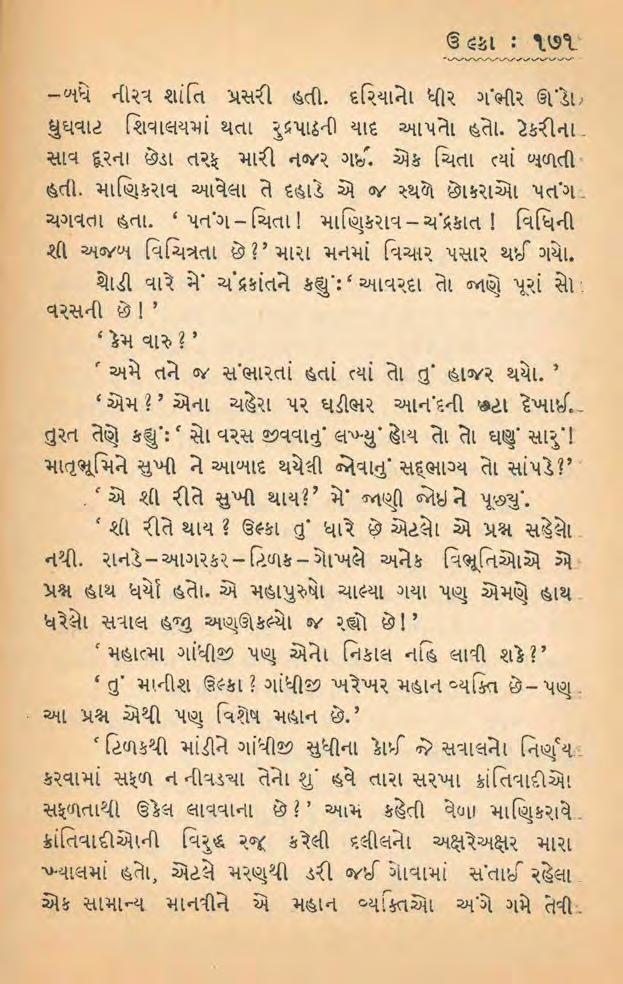 ઉલ્કા : ૧૭૧
–બધે નીરવ શાંતિ પ્રસરી હતી. દરિયાનો ધીર ગંભીર ઊંડો
ઘુઘવાટ શિવાલયમાં થતા રુદ્રપાઠની યાદ આપતો હતો. ટેકરીના
સાવ દૂરના છેડા તરફ મારી નજર ગઈ. એક ચિતા ત્યાં બળતી
હતી. માણિકરાવ આવેલા તે દહાડે એ જ સ્થળે છોકરાઓ પતંગ
ચગવતા હતા. ‘ પતંગ – ચિતા ! માણિકરાવ – ચંદ્રકાત ! વિધિની
શી અજબ વિચિત્રતા છે ?’ મારા મનમાં વિચાર પસાર થઈ ગયો.
થોડી વારે મેં ચંદ્રકાંતને કહ્યું : ‘ આવરદા તો જાણે પૂરાં સો
વરસની છે ! ’
‘ કેમ વારુ ? ’
‘ અમે તને જ સંભારતાં હતાં ત્યાં તો તું હાજર થયો. ’
‘ એમ ? ’ એના ચહેરા પર ઘડીભર આનંદની છટા દેખાઈ.
તુરત તેણે કહ્યું : ‘ સો વરસ જીવવાનું લખ્યું હોય તો તો ઘણું સારું !
માતૃભૂમિને સુખી ને આબાદ થયેલી જોવાનું સદ્ભાગ્ય તો સાંપડે ?’
‘ એ શી રીતે સુખી થાય?’ મેં જાણી જોઇને પૂછ્યું.
‘ શી રીતે થાય ? ઉલ્કા તું ધારે છે એટલો એ પ્રશ્ન સહેલો
નથી. રાનડે – આગરકર – ટિળક – ગોખલે અનેક વિભૂતિઓએ એ
પ્રશ્ન હાથ ધર્યો હતો. એ મહાપુરુષો ચાલ્યા ગયા પણ એમણે હાથ
ધરેલો સવાલ હજુ અણઊકલ્યો જ રહ્યો છે ! ’
‘ મહાત્મા ગાંધીજી પણ એનો નિકાલ નહિ લાવી શકે ?’
‘ તું માનીશ ઉલ્કા ? ગાંધીજી ખરેખર મહાન વ્યક્તિ છે – પણ
આ પ્રશ્ન એથી પણ વિશેષ મહાન છે.’
‘ ટિળકથી માંડીને ગાંધીજી સુધીના કોઈ જે સવાલનો નિર્ણય
કરવામાં સફળ ન નીવડ્યા તેનો શું હવે તારા સરખા ક્રાંતિવાદીઓ
સફળતાથી ઉકેલ લાવવાના છે ? ’ આમ કહેતી વેળા માણિકરાવે
ક્રાંતિવાદીઓની વિરુદ્ધ રજૂ કરેલી દલીલનો અક્ષરેઅક્ષર મારા
ખ્યાલમાં હતો, એટલે મરણથી ડરી જઈ ગોવામાં સંતાઈ રહેલા
એક સામાન્ય માનવીને એ મહાન વ્યક્તિઓ અંગે ગમે તેવી